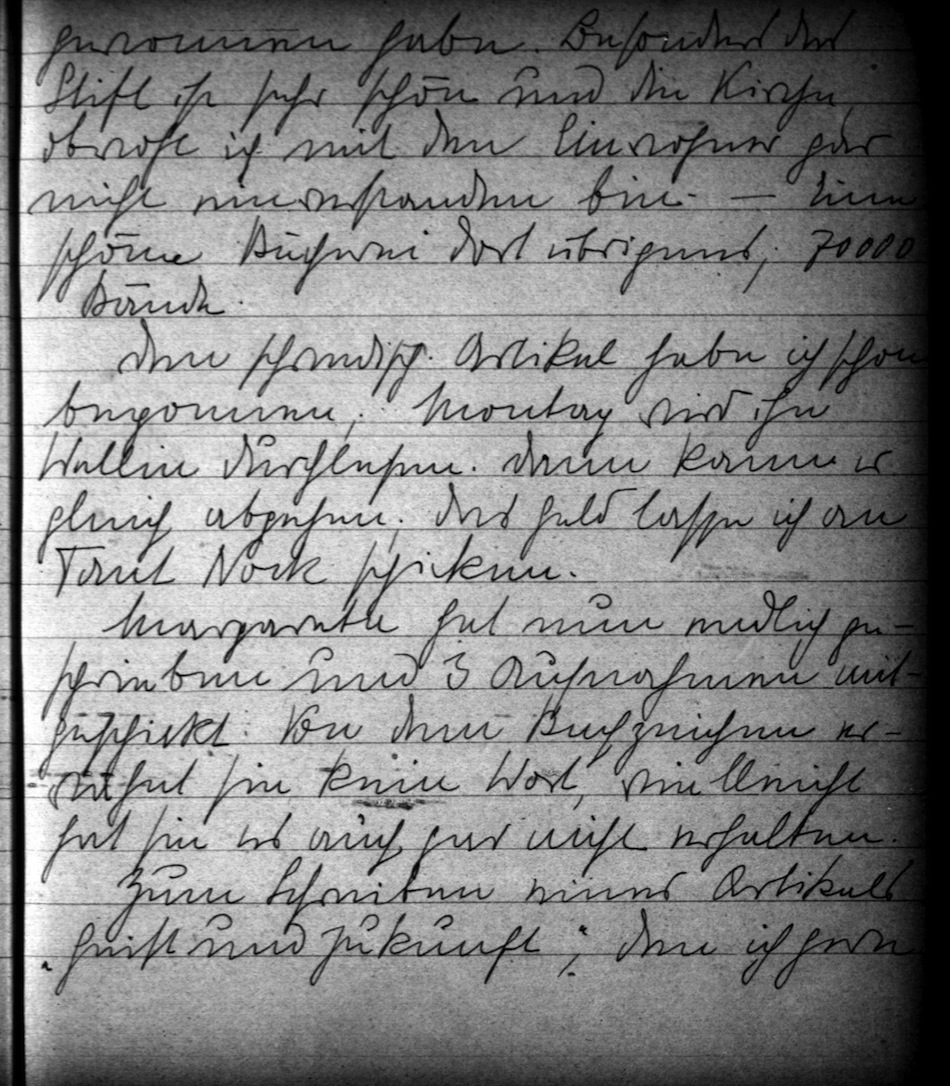 gewonnen habe. Besonders das
Stift ist sehr schön und die Kirche,
obwohl ich mit den Einwohner gar
nicht einverstanden bin. — Eine
schöne Bücherei dort übrigens, 70000
Bände.
Den schwedisch. Artikel habe ich schon
begonnen, Montag wird ihn
Wallin durchlesen. Dann kann er
gleich abgehen. Das Geld lasse ich an
Tant Nock schicken.
Margarethe hat nun endlich ge-
schrieben und 3 Aufnahmen mit-
geschickt. Von dem Buchzeichen er-
wähnt sie kein Wort, vielleicht
hat sie es auch gar nicht erhalten.
Zum Schreiben eines Artikels
„Geist und Zukunft“, den ich gern